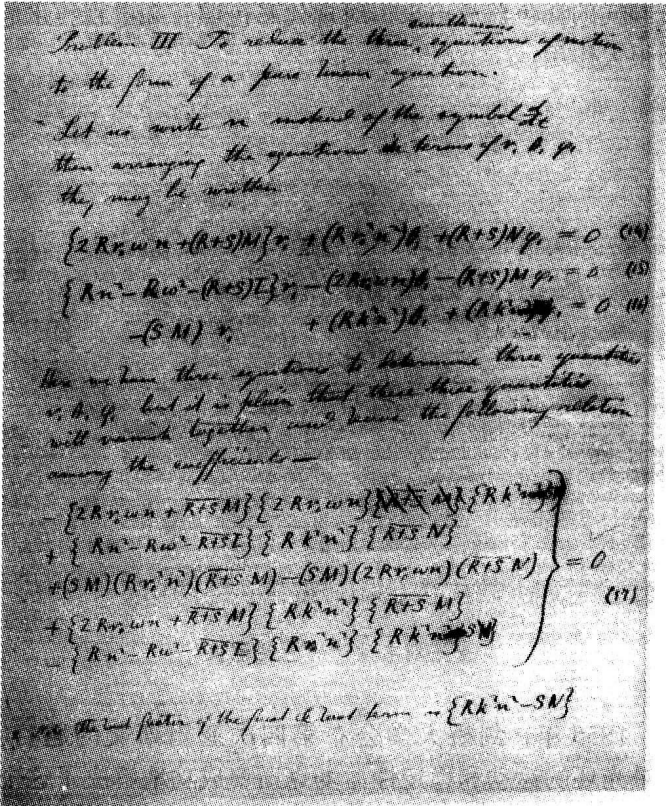 simultaneous
Problem III To reduce the three equations of motion
to the form of a pure linear equation.
Let us write n instead of the symbol d/dt
then arranging the equations in terms of r, θ, φ,
they may be written
{2Rr₀ωn + (R+S)M}r₁ + (Rr₀²n²)θ₁ + (R+S)Nφ₁ = 0 (14)
{Rn² – Rω² – (R+S)L}r₁ – (2Rr₀ωn)θ₁ – (R+S)Mφ₁ = 0 (15)
–(SM) r₁ + (Rk²n²)θ₁ + (Rk²n² φ₁ = 0 (16)
Here we have three equations to determine three quantities
r₁ θ₁ φ₁ but it is plain that these three quantities
will vanish together and hence the following relation
among the coefficients —
– {2Rr₀ωn + R+S M} {2Rr₀ωn} {Rk²n²
+ {Rn² – Rω² – R+S L} {Rk²n²} {R+S N}
+ (SM) (Rr₀²n²) (R+S M) – (SM) (2Rr₀ωn) (R+S N) = 0
+ {2Rr₀ωn + R+S M} {Rk²n²} {R+S M} (17)
– {Rn² – Rω² – R+S L} {Rr₀²n²} {Rk²n² SN}
the last factor of the first & last term is {Rk²n² – SN}